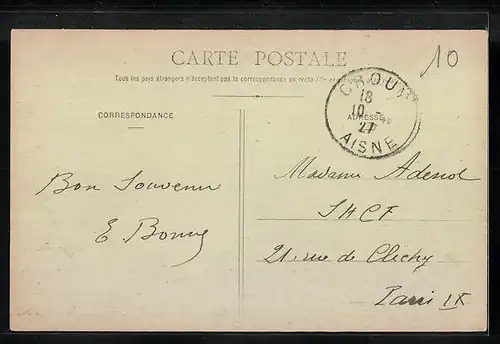 CARTE POSTALE
10
Tous les pays étrangers n'acceptent pas la correspondance au recto
CORRESPONDANCE
ADRESSE
CROUY
18
10
27
AISNE
Bon Souvenir
E. Bonny
Madame Adenot
21 rue de Clichy
Paris IX